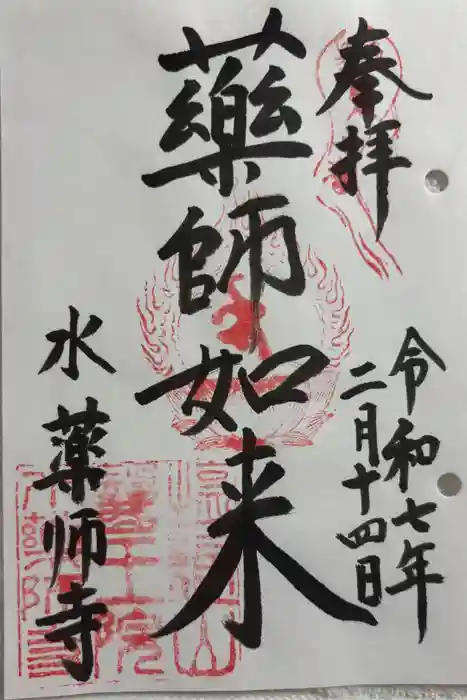 奉拝
令和七年
二月十四日
藥師如来
水薬师寺